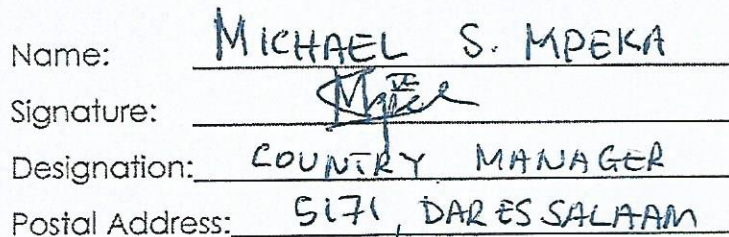 Name: MICHAEL S. MPEKA
Signature:
Designation: COUNTRY MANAGER
Postal Address: 5171, DAR ES SALAAM